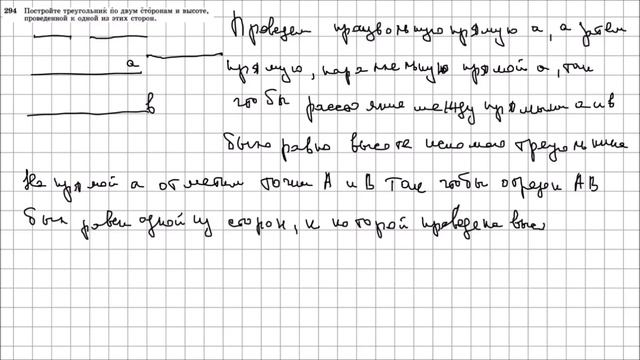 294 Постройте треугольник по двум сторонам и высоте,
проведенной к одной из этих сторон.
Проведем произвольную прямую a, а затем
a
прямую, параллельную прямой a, так
чтобы расстояние между прямыми a и в
в
было равно высоте искомого треугольника
На прямой a отметим точки A и B так чтобы отрезок AB
был равен одной из сторон, к которой проведена выс